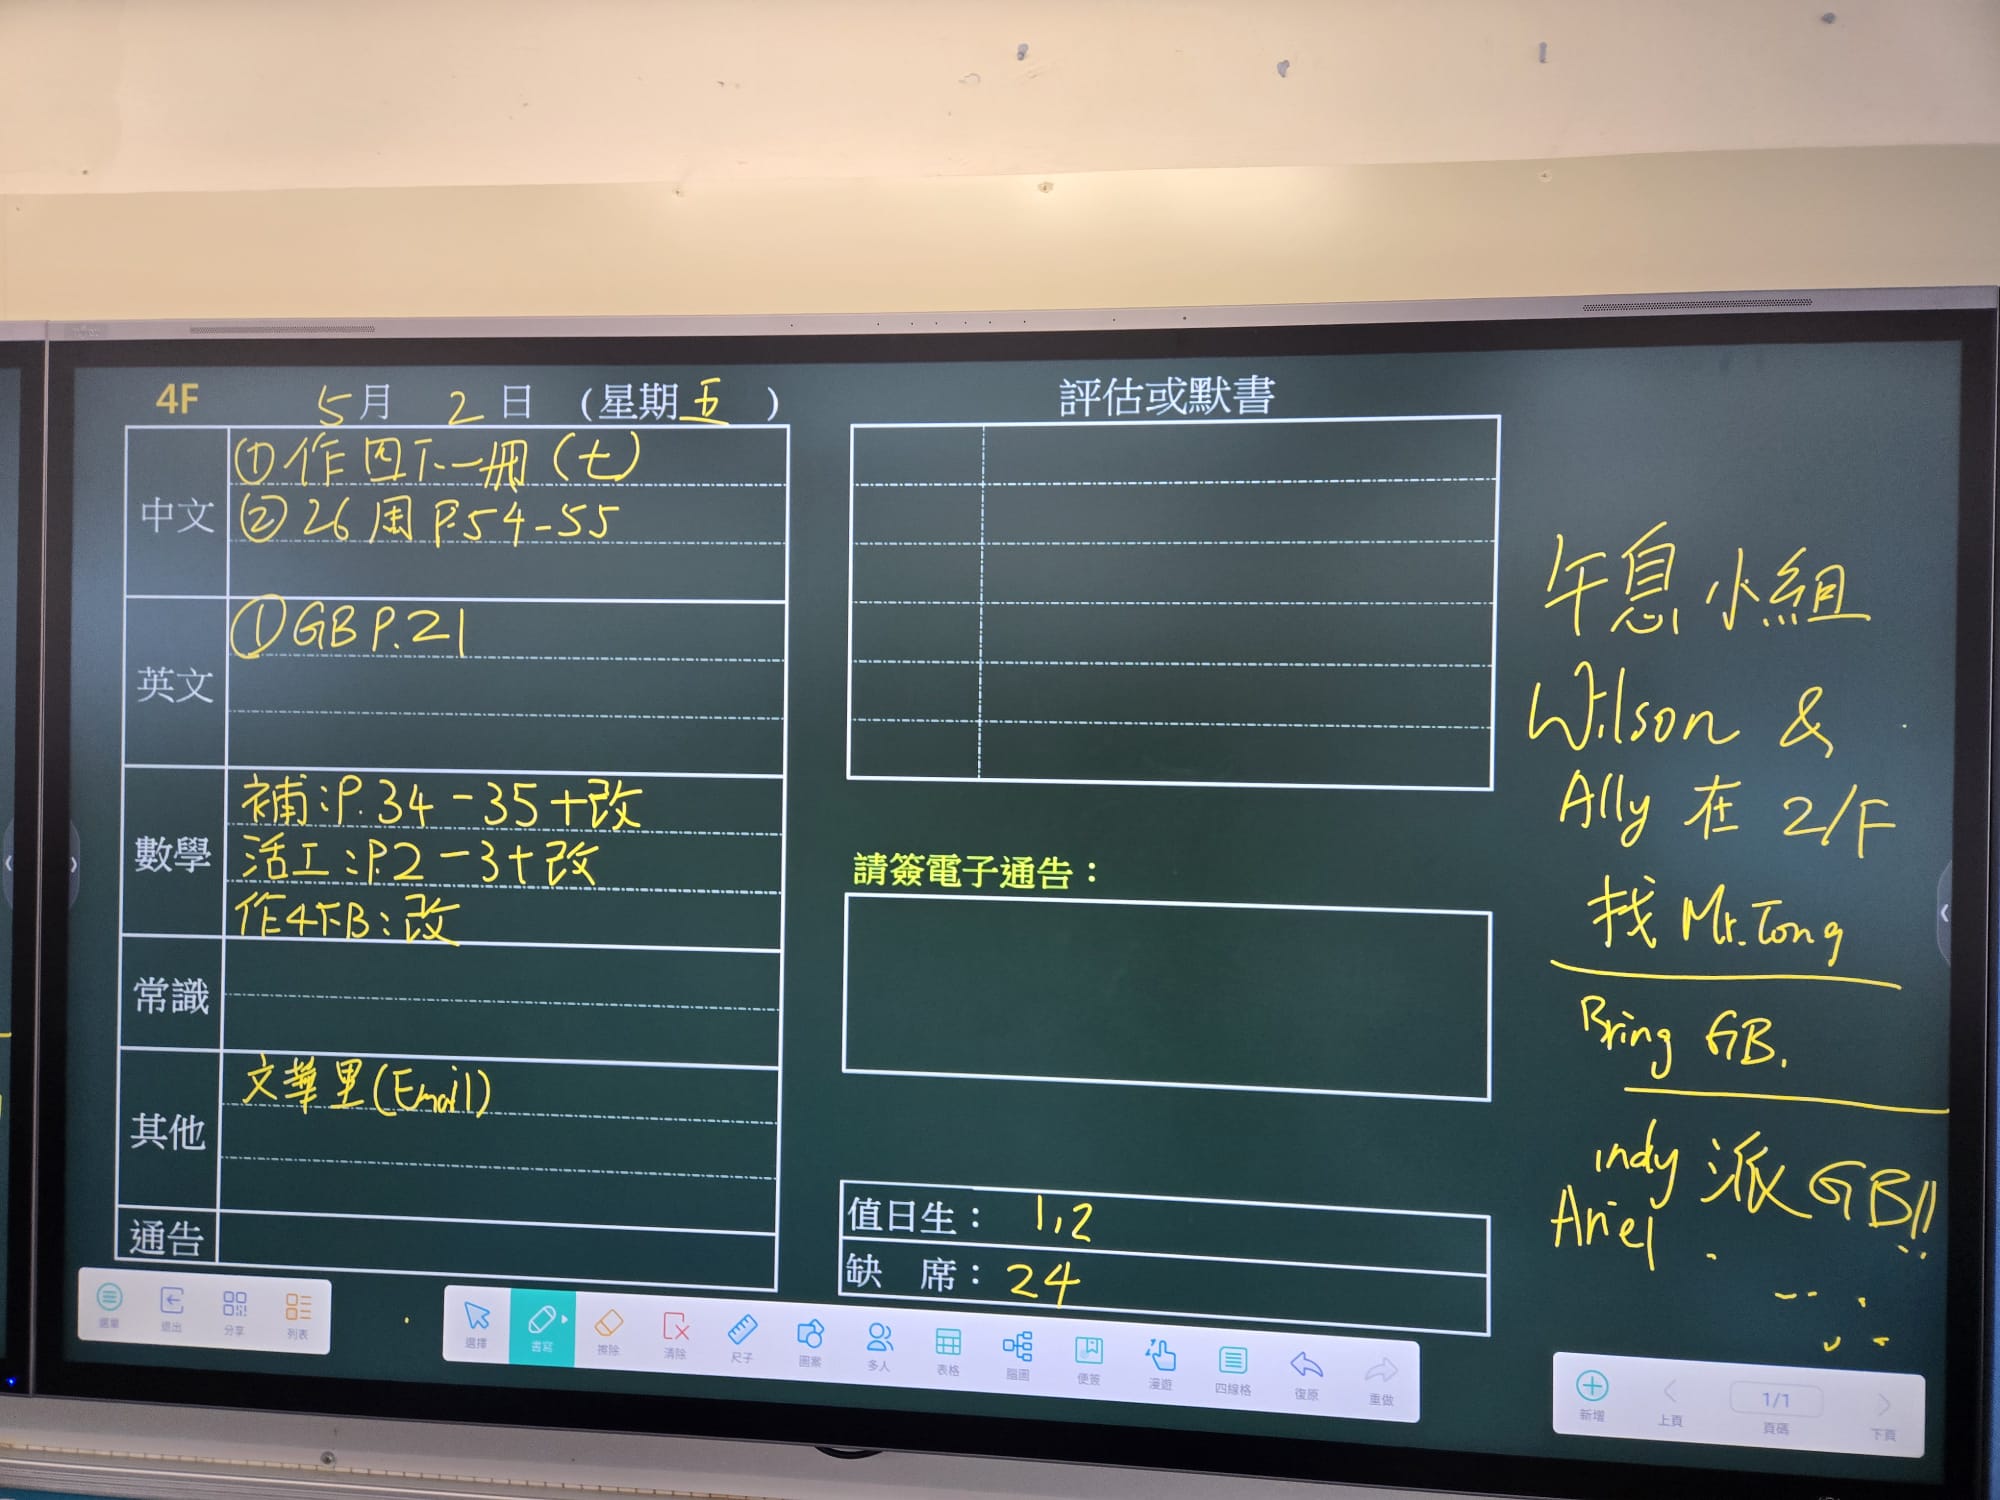 4F 5月 2日 (星期五)
中文
①作四下一冊(七)
②26周 P.54-55
英文
①GB P.21
數學
補:P.34-35+改
活工:P.2-3+改
作4下B:改
常識
其他
文華里(Email)
通告
評估或默書
請簽電子通告:
值日生: 1,2
缺 席: 24
午息小組
Wilson &
Ally 在 2/F
找 Mr. Tong
Bring GB.
indy 派 GB!!
Ariel
選單 退出 分享 列表
選擇 書寫 擦除 清除 尺子 圖案 多人 表格 腦圖 便簽 漫遊 四線格 復原 重做
新增 上頁 1/1 頁碼 下頁